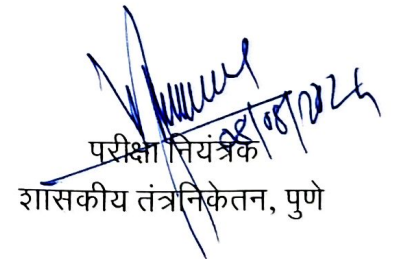 08/08/2025
परीक्षा नियंत्रक
शासकीय तंत्रनिकेतन, पुणे